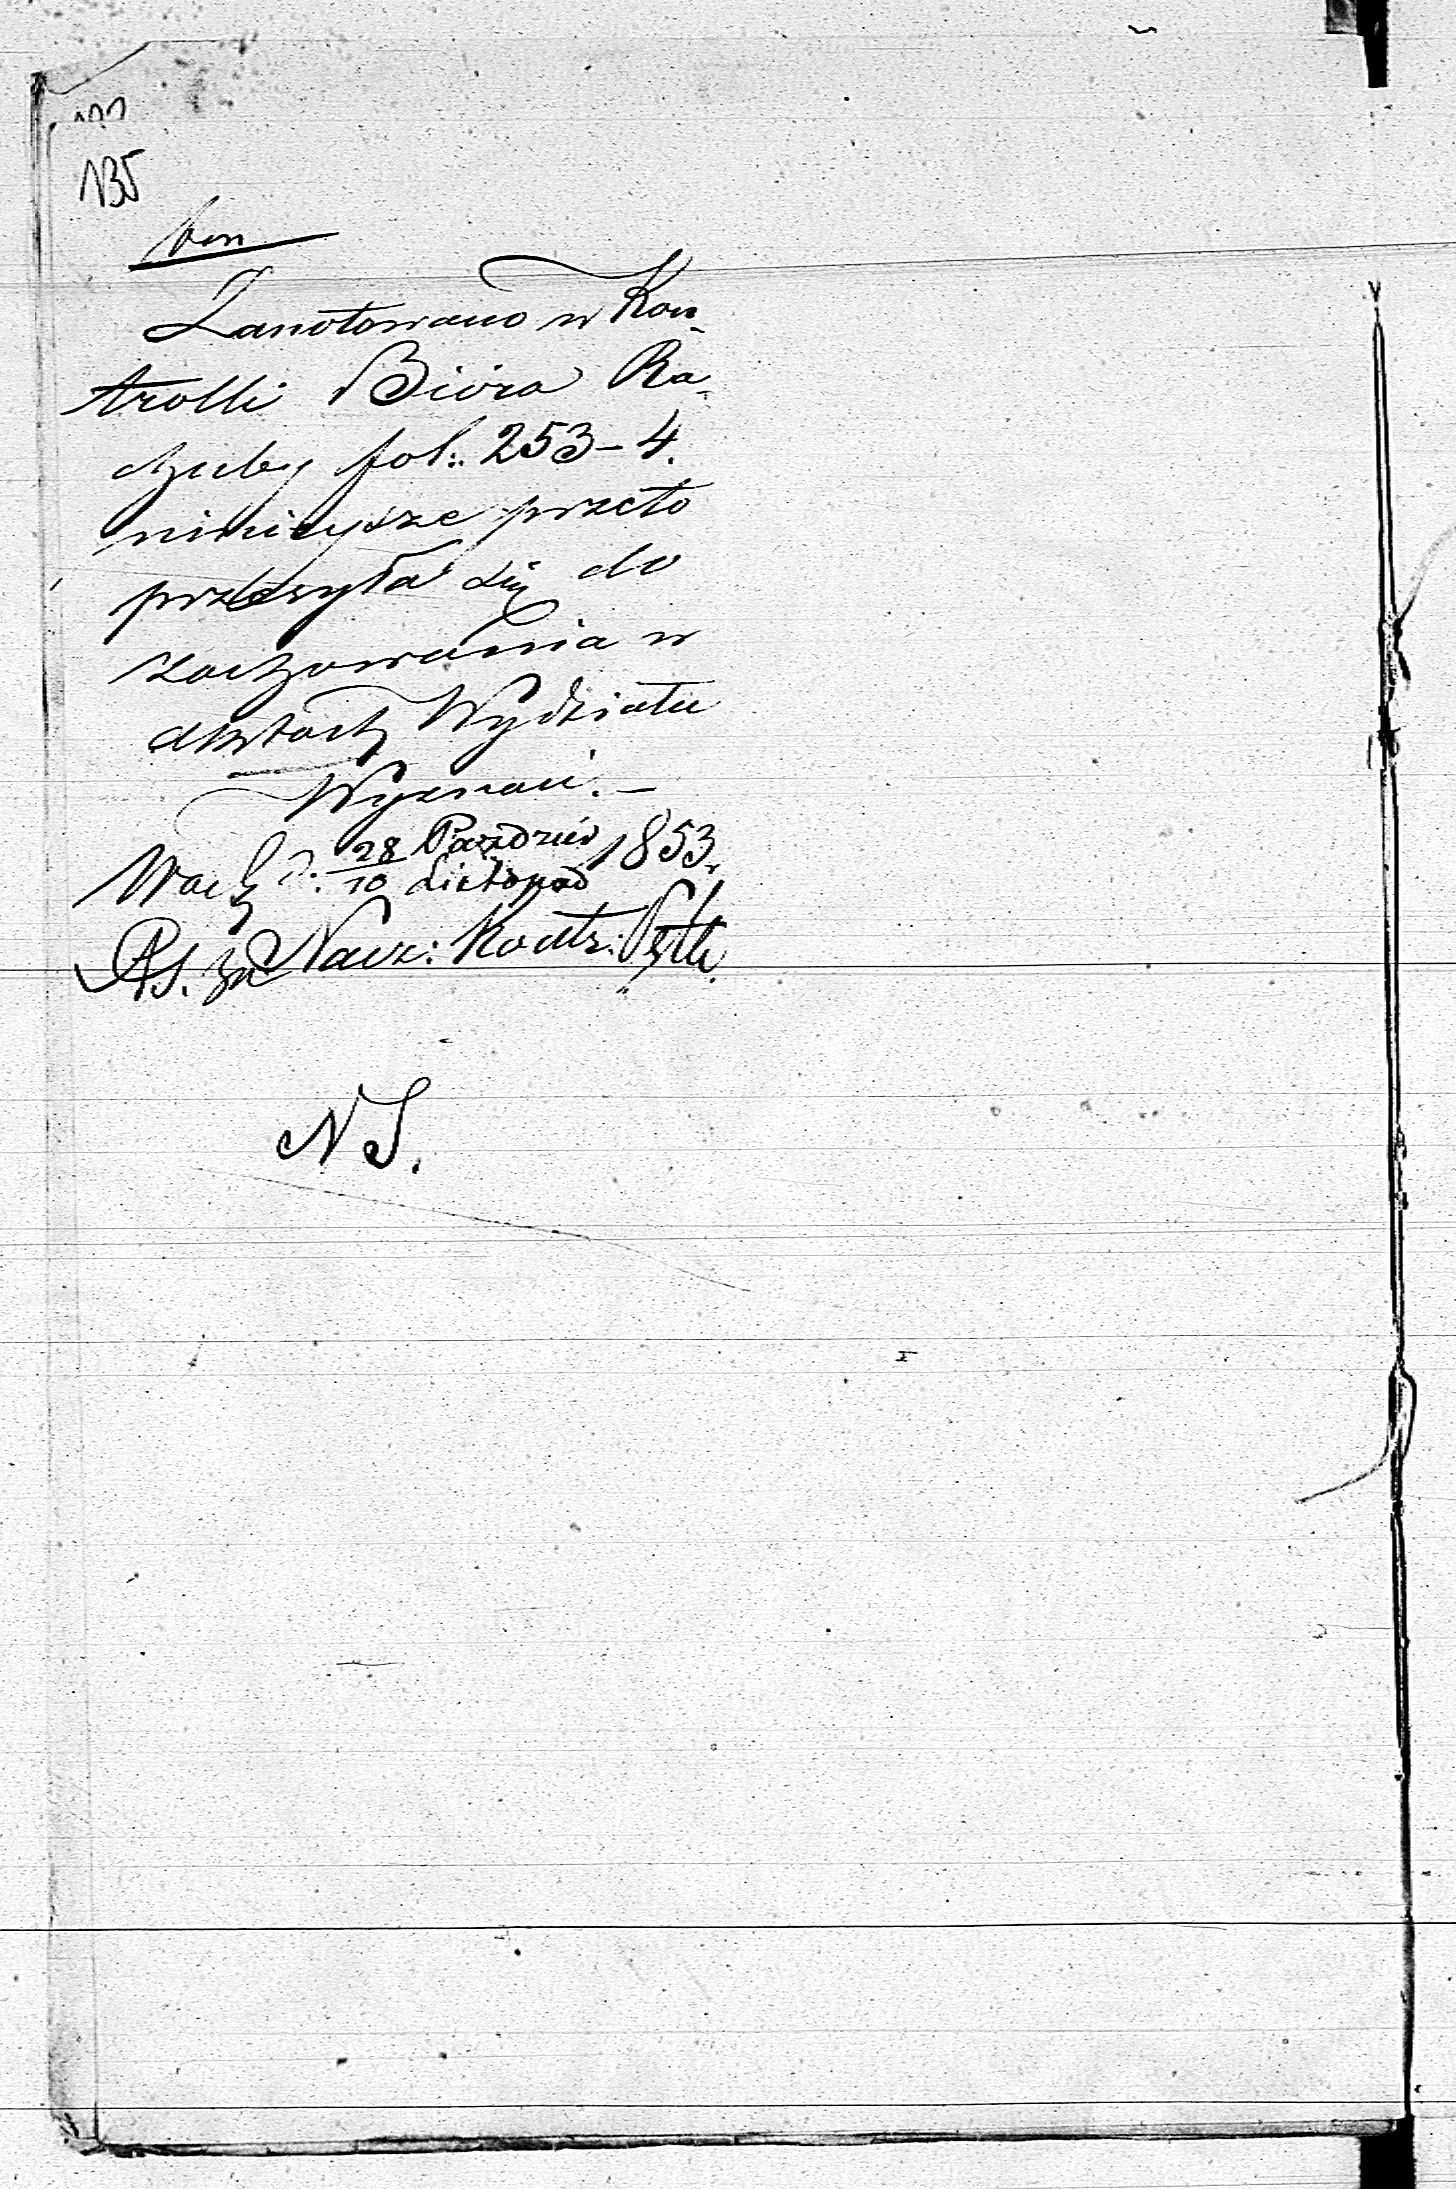 135
Zanotowano w Kon-
trolli Bióra Ra-
chuby fol: 253-4.
niniejsze przeto
przesyła się do
zachowania w
aktach Wydziału
Wyznań. —
28 Paździer 1853
10 Listopad
Nacz:
N S.